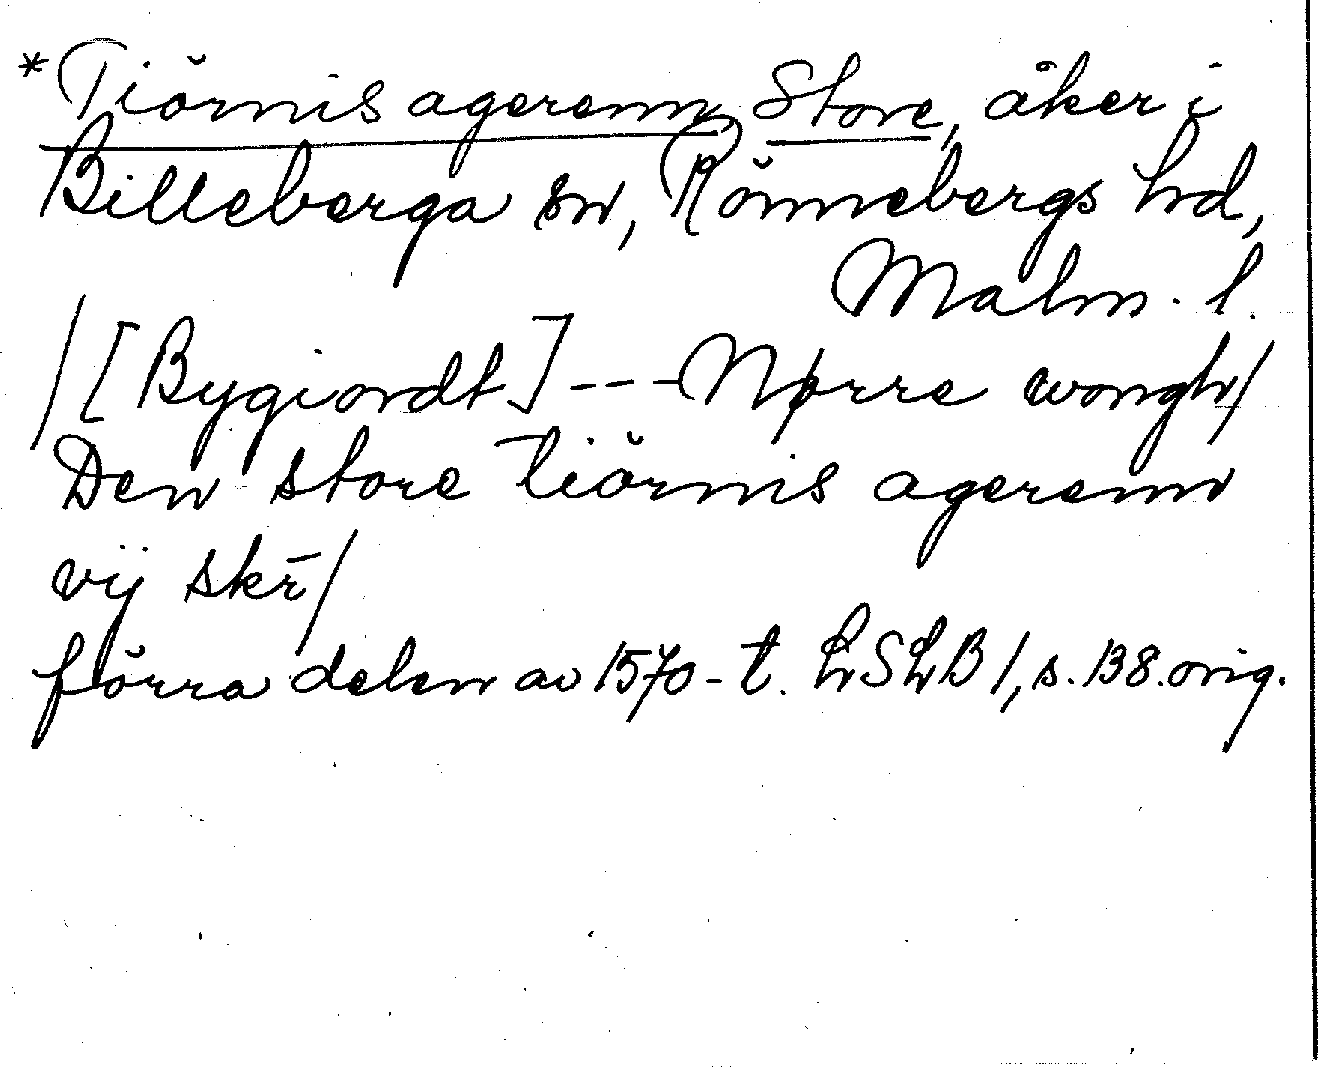 *Tiörnis ageremn, Store, åker i
Billeberga sn, Rönnebergs hd,
Malm. l.
/[Bygiordt]---Nørre wongh/
Den store tiörnis ageremn
vij skr̄/
förra delen av 1570-t. LSLB 1, s. 138. orig.